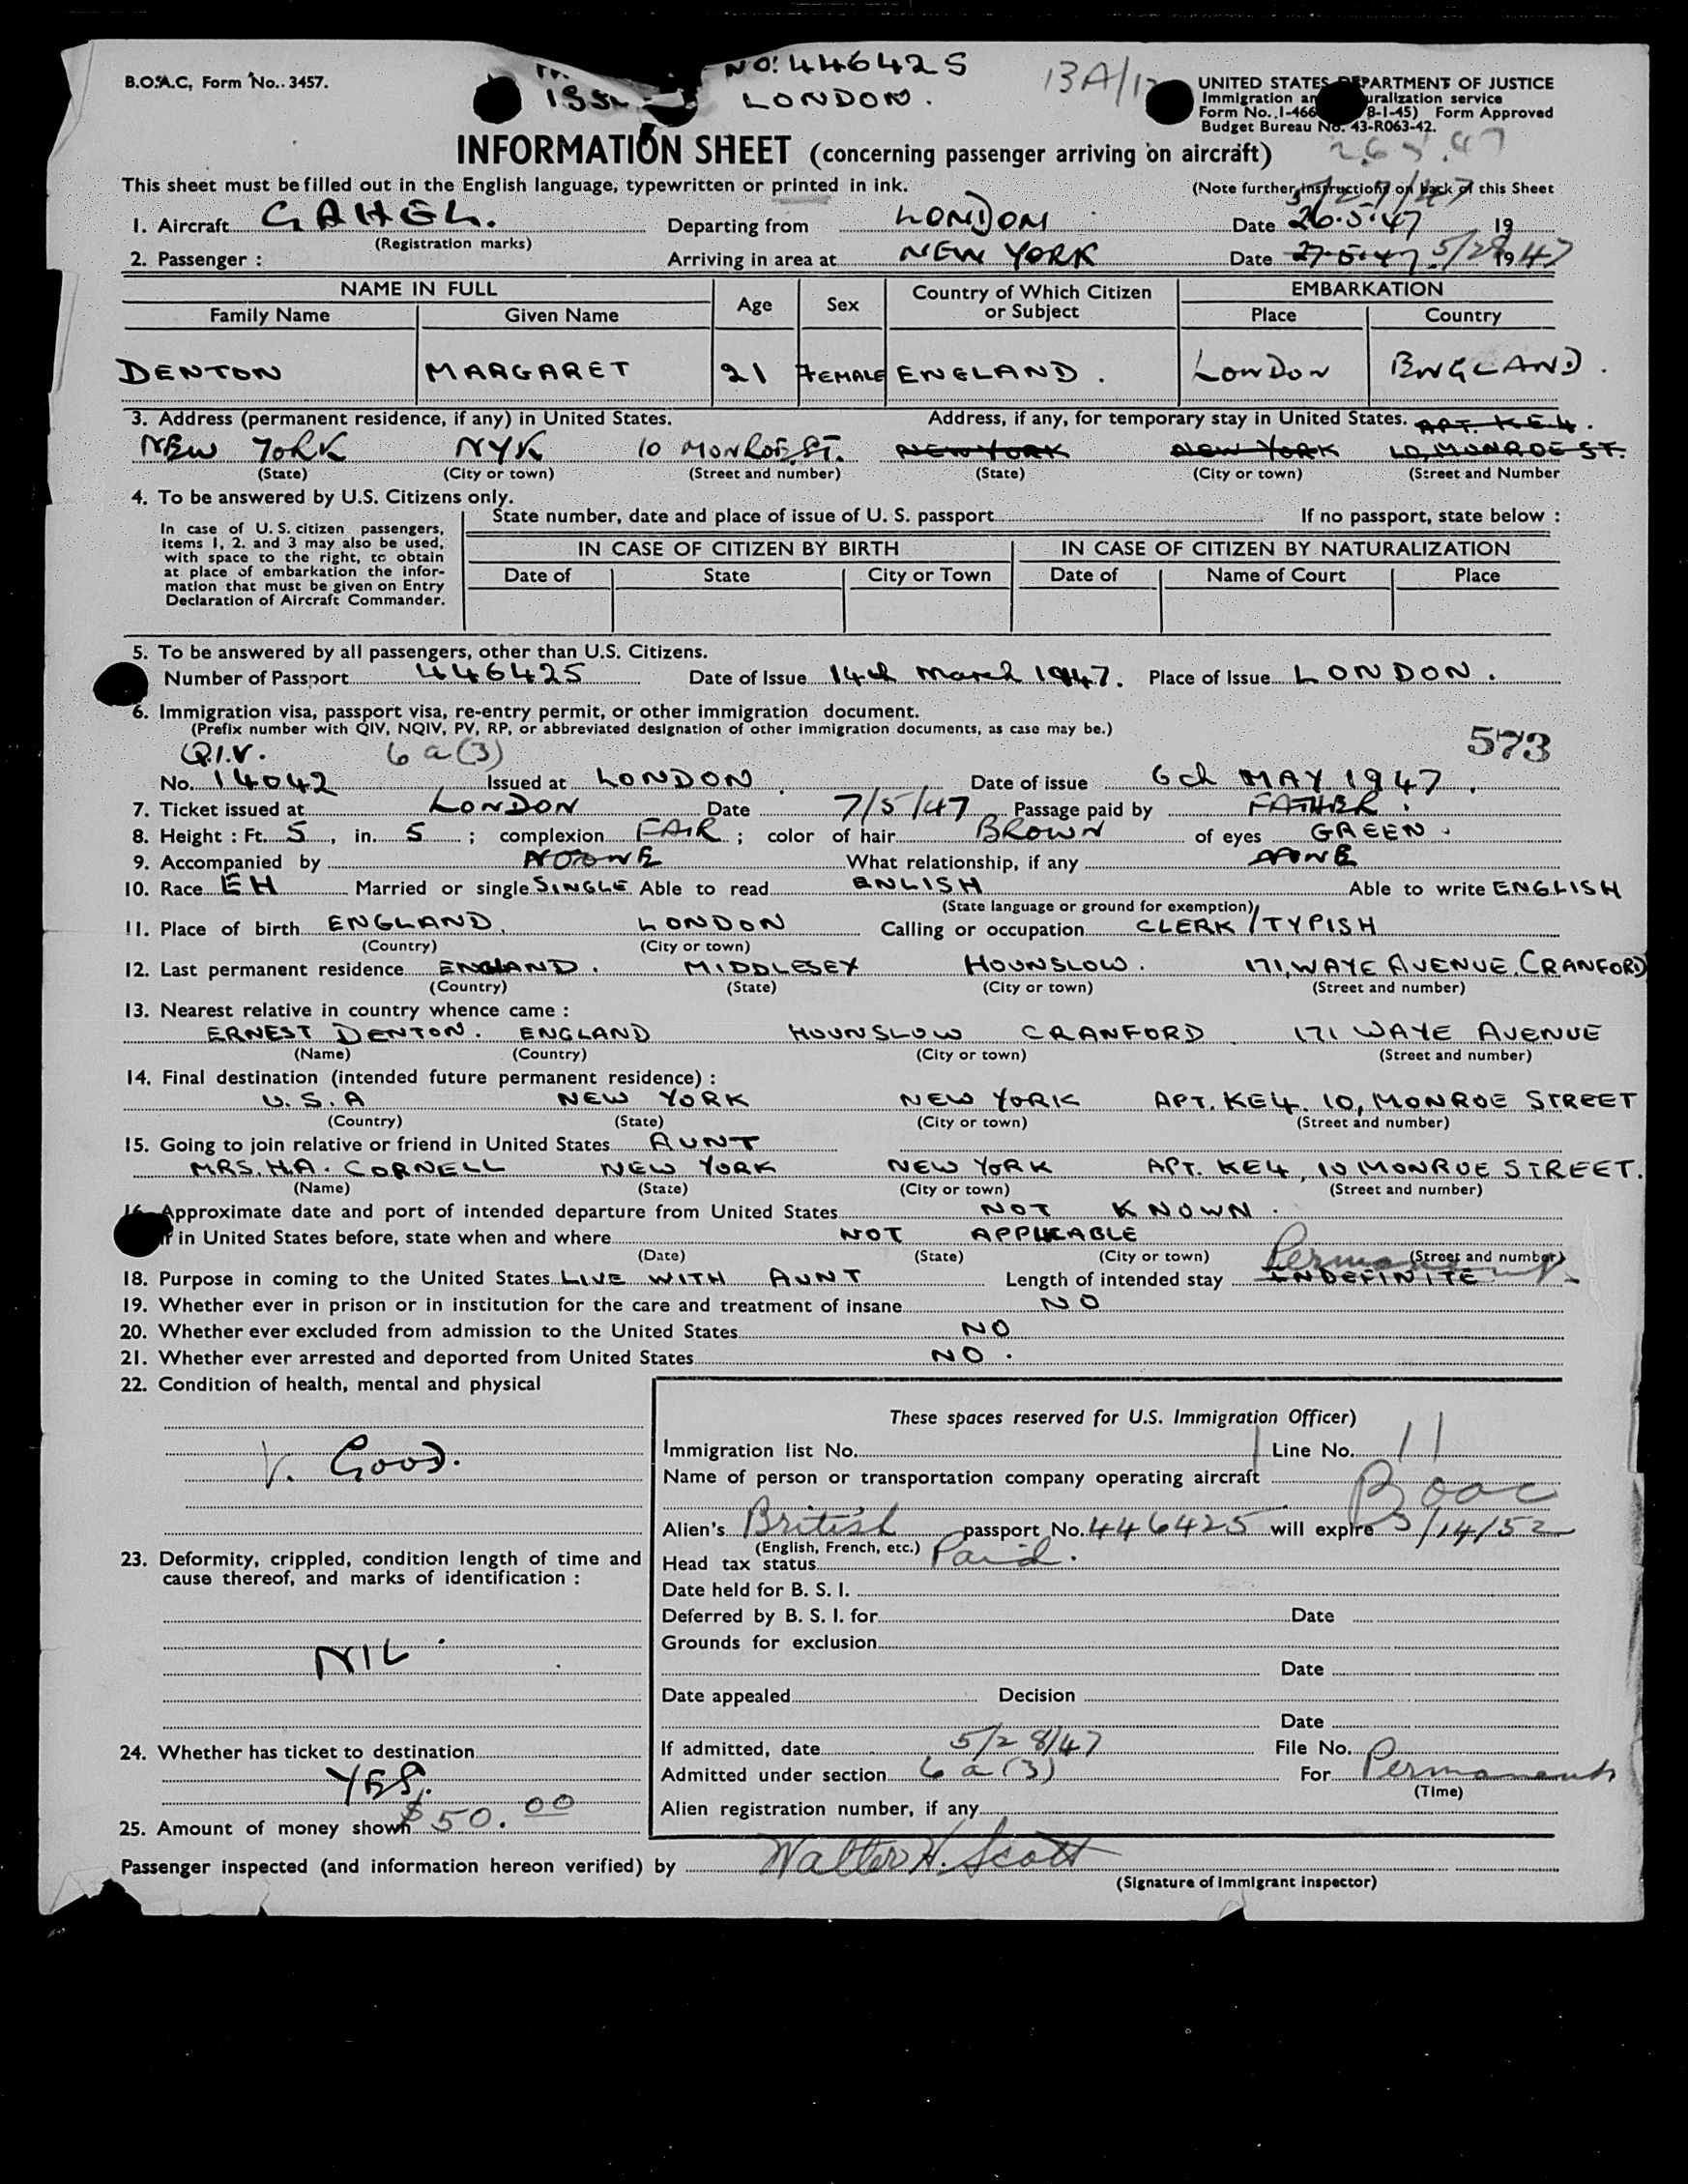 B.O.A.C, Form No.. 3457.
NO: 446425
LONDON.
13A/1
UNITED STATES DEPARTMENT OF JUSTICE
Immigration an uralization service
Form No. I-466 8-1-45) Form Approved
Budget Bureau No. 43-R063-42.
26.5.47
INFORMATION SHEET (concerning passenger arriving on aircraft)
This sheet must be filled out in the English language, typewritten or printed in ink. (Note further instructions on back of this Sheet
5/27/47
1. Aircraft GAHEL. Departing from LONDON Date 26.5.47 19
(Registration marks)
2. Passenger : Arriving in area at NEW YORK Date 27.5.47 5/28 19 47
NAME IN FULL Age Sex Country of Which Citizen or Subject EMBARKATION
Family Name Given Name Place Country
DENTON MARGARET 21 FEMALE ENGLAND. LONDON ENGLAND.
3. Address (permanent residence, if any) in United States. Address, if any, for temporary stay in United States. APT. KE4.
NEW YORK NYK 10 MONROE ST. NEW YORK NEW YORK 10, MONROE ST.
(State) (City or town) (Street and number) (State) (City or town) (Street and Number
4. To be answered by U.S. Citizens only.
In case of U.S. citizen passengers, items 1, 2. and 3 may also be used, with space to the right, to obtain at place of embarkation the information that must be given on Entry Declaration of Aircraft Commander.
State number, date and place of issue of U. S. passport If no passport, state below :
IN CASE OF CITIZEN BY BIRTH IN CASE OF CITIZEN BY NATURALIZATION
Date of State City or Town Date of Name of Court Place
5. To be answered by all passengers, other than U.S. Citizens.
Number of Passport 446425 Date of Issue 14th March 1947. Place of Issue LONDON.
6. Immigration visa, passport visa, re-entry permit, or other immigration document.
(Prefix number with QIV, NQIV, PV, RP, or abbreviated designation of other immigration documents, as case may be.)
573
Q.I.V. 6a(3)
No. 14042 Issued at LONDON. Date of issue 6th MAY 1947.
7. Ticket issued at LONDON Date 7/5/47 Passage paid by FATHER.
8. Height : Ft. 5, in. 5 ; complexion FAIR ; color of hair BROWN of eyes GREEN.
9. Accompanied by NOONE What relationship, if any NONE
10. Race EH Married or single SINGLE Able to read ENLISH Able to write ENGLISH
(State language or ground for exemption)
11. Place of birth ENGLAND. LONDON Calling or occupation CLERK / TYPISH
(Country) (City or town)
12. Last permanent residence ENGLAND. MIDDLESEX HOUNSLOW. 171, WAYE AVENUE. CRANFORD
(Country) (State) (City or town) (Street and number)
13. Nearest relative in country whence came :
ERNEST DENTON. ENGLAND HOUNSLOW CRANFORD 171 WAYE AVENUE
(Name) (Country) (City or town) (Street and number)
14. Final destination (intended future permanent residence) :
U.S.A NEW YORK NEW YORK APT. KE4. 10, MONROE STREET
(Country) (State) (City or town) (Street and number)
15. Going to join relative or friend in United States AUNT
MRS. H.A. CORNELL NEW YORK NEW YORK APT. KE4, 10 MONROE STREET.
(Name) (State) (City or town) (Street and number)
16. Approximate date and port of intended departure from United States NOT KNOWN.
in United States before, state when and where NOT APPLICABLE
(Date) (State) (City or town) (Street and number)
Permanent
18. Purpose in coming to the United States LIVE WITH AUNT Length of intended stay INDEFINITE
19. Whether ever in prison or in institution for the care and treatment of insane NO
20. Whether ever excluded from admission to the United States NO
21. Whether ever arrested and deported from United States NO.
22. Condition of health, mental and physical
V. GOOD.
23. Deformity, crippled, condition length of time and
cause thereof, and marks of identification :
NIL
24. Whether has ticket to destination
YES.
25. Amount of money shown $50.00
These spaces reserved for U.S. Immigration Officer)
Immigration list No. Line No. 11
Name of person or transportation company operating aircraft
Boac
Alien's British passport No. 446425 will expire 3/14/52
(English, French, etc.)
Head tax status Paid.
Date held for B. S. I.
Deferred by B. S. I. for Date
Grounds for exclusion
Date
Date appealed Decision
Date
If admitted, date 5/28/47 File No.
Admitted under section 6a(3) For Permanent
(Time)
Alien registration number, if any
Passenger inspected (and information hereon verified) by Walter H. Scott
(Signature of Immigrant inspector)